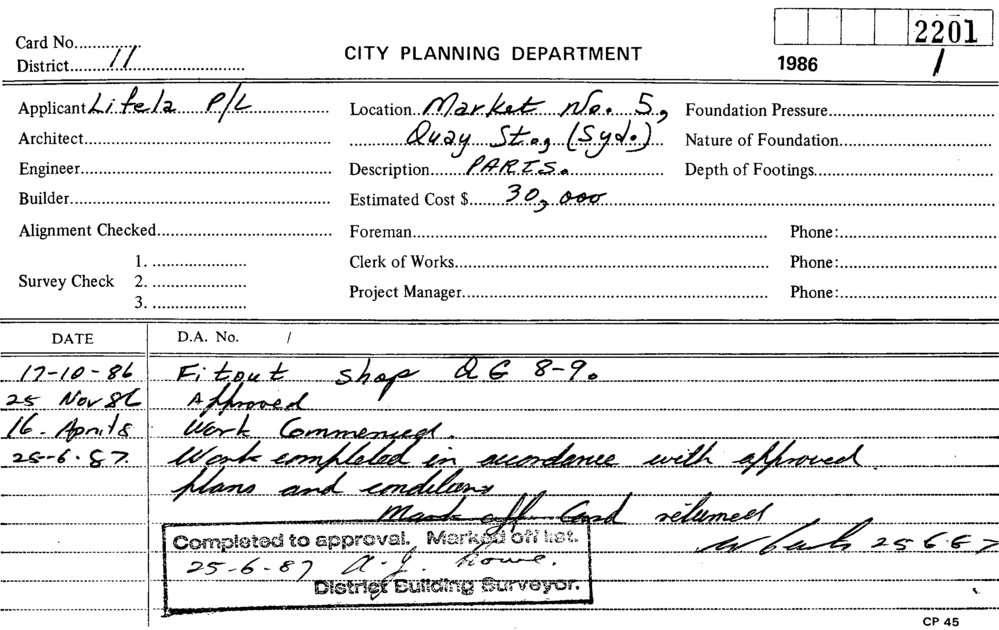 2201
Card No.
District 11
CITY PLANNING DEPARTMENT
1986 /
Applicant Litela P/L
Location Market No. 5,
Foundation Pressure
Architect
Quay St., (Syd.)
Nature of Foundation
Engineer
Description PARTS.
Depth of Footings
Builder
Estimated Cost $ 30,000
Alignment Checked
Foreman
Phone:
Survey Check
1.
2.
3.
Clerk of Works
Phone:
Project Manager
Phone:
DATE
D.A. No. /
17-10-86 Fitout shop QG 8-9.
25 Nov 86 Approved
16. April 8 Work Commenced.
25-6-87. Work completed in accordance with approved
plans and conditions
Mark off Card returned
25 6 87
Completed to approval. Marked off list.
25-6-87 A.J. Howe.
District Building Surveyor.
CP 45